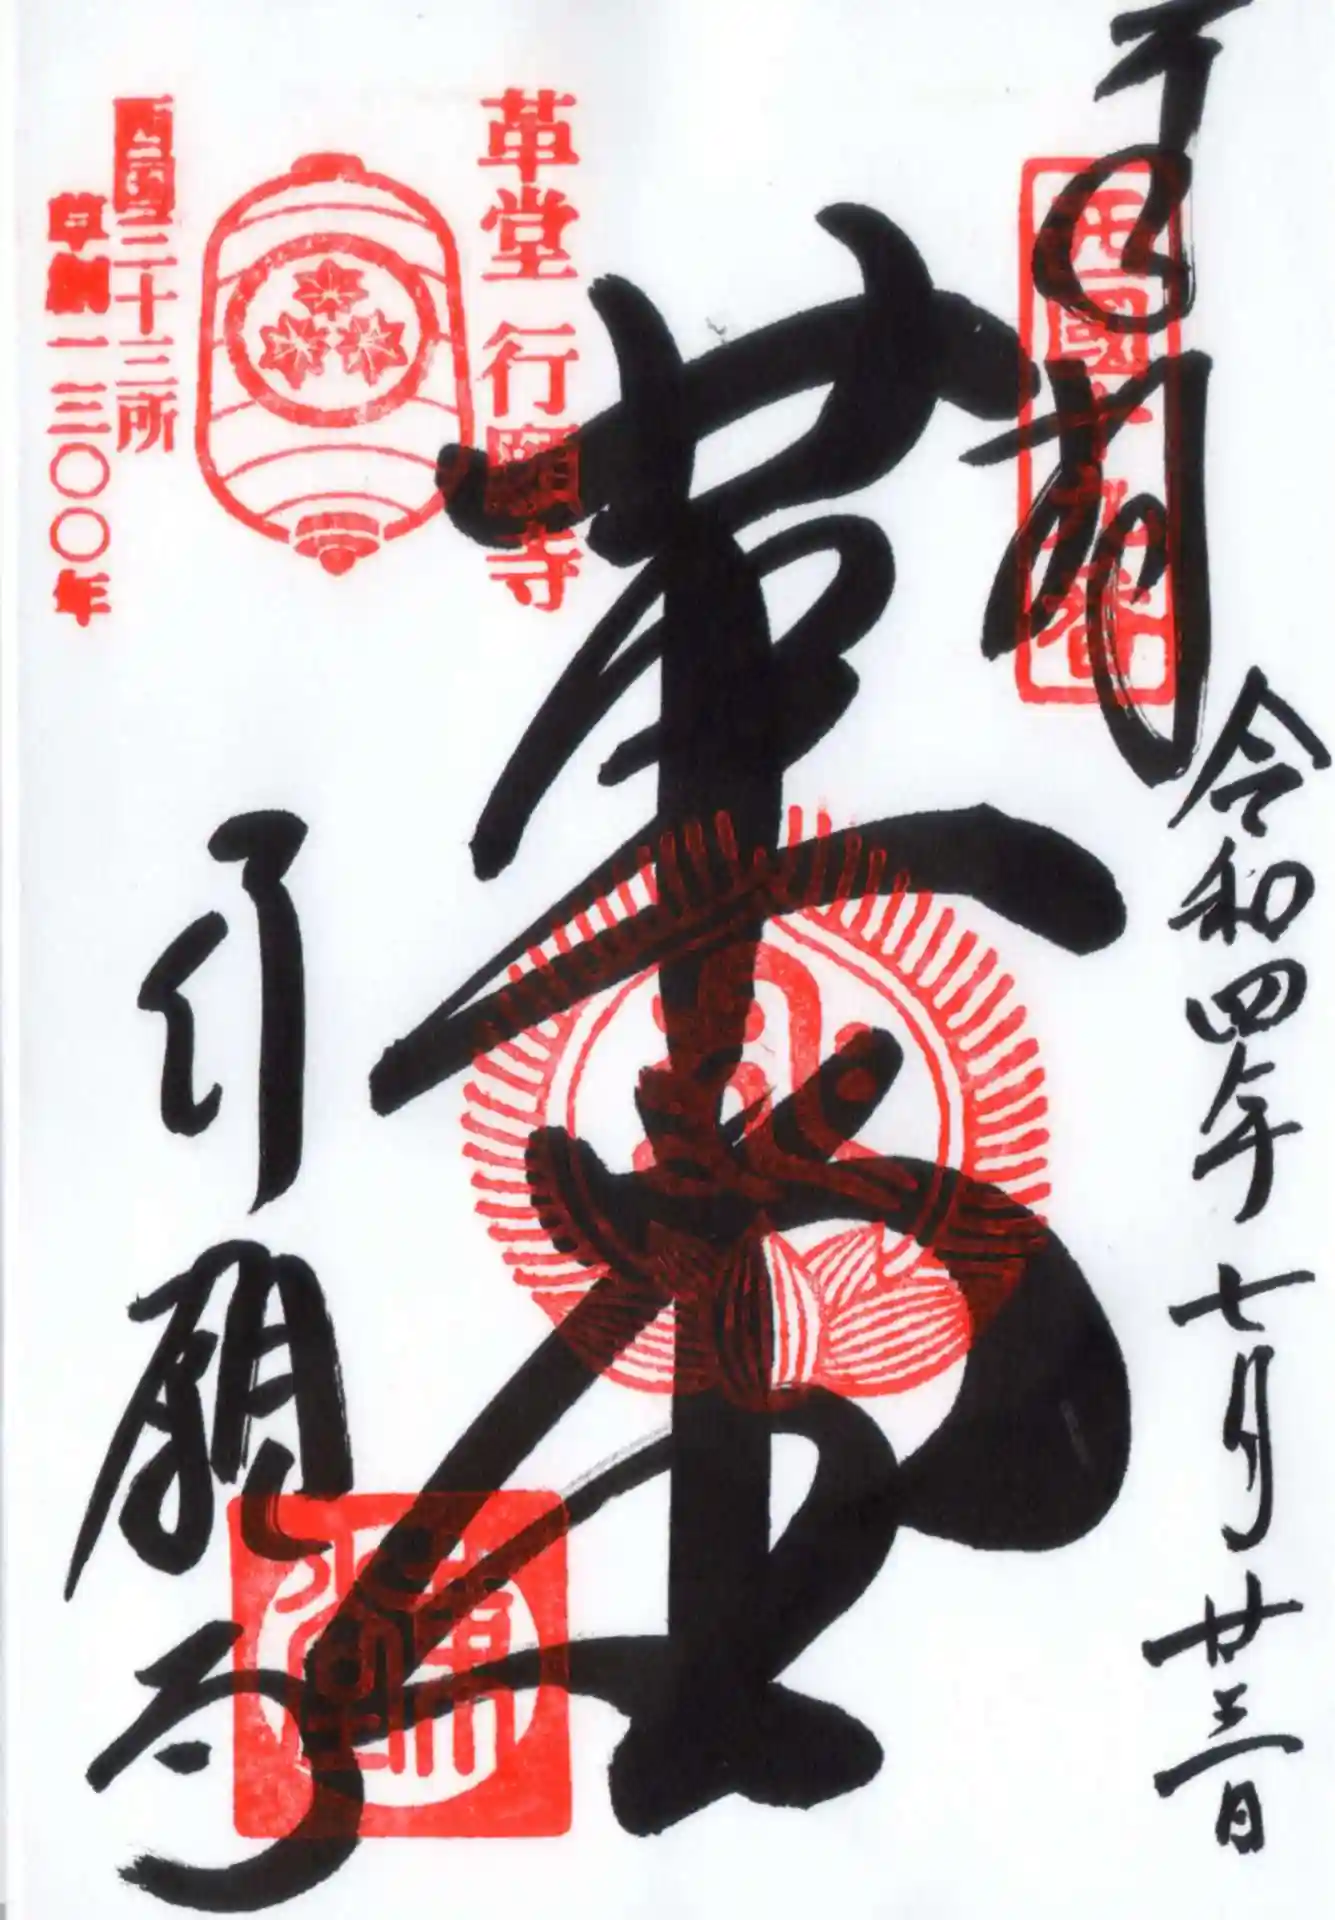 奉拝
西國十九番
令和四年七月廿三日
革堂
革堂 行願寺
西国三十三所
草創一三〇〇年
行願寺